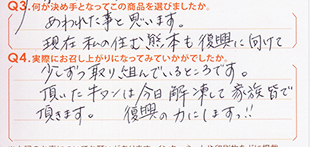 Q3.何が決め手となってこの商品を選びましたか。
あわれた事と思います。
現在 私の住む熊本も復興に向けて
Q4.実際にお召し上がりになってみていかがでしたか。
少しずつ取り組んでいるところです。
頂いた牛タンは今日解凍して家族皆で
頂きます。 復興の力にしますっ!!